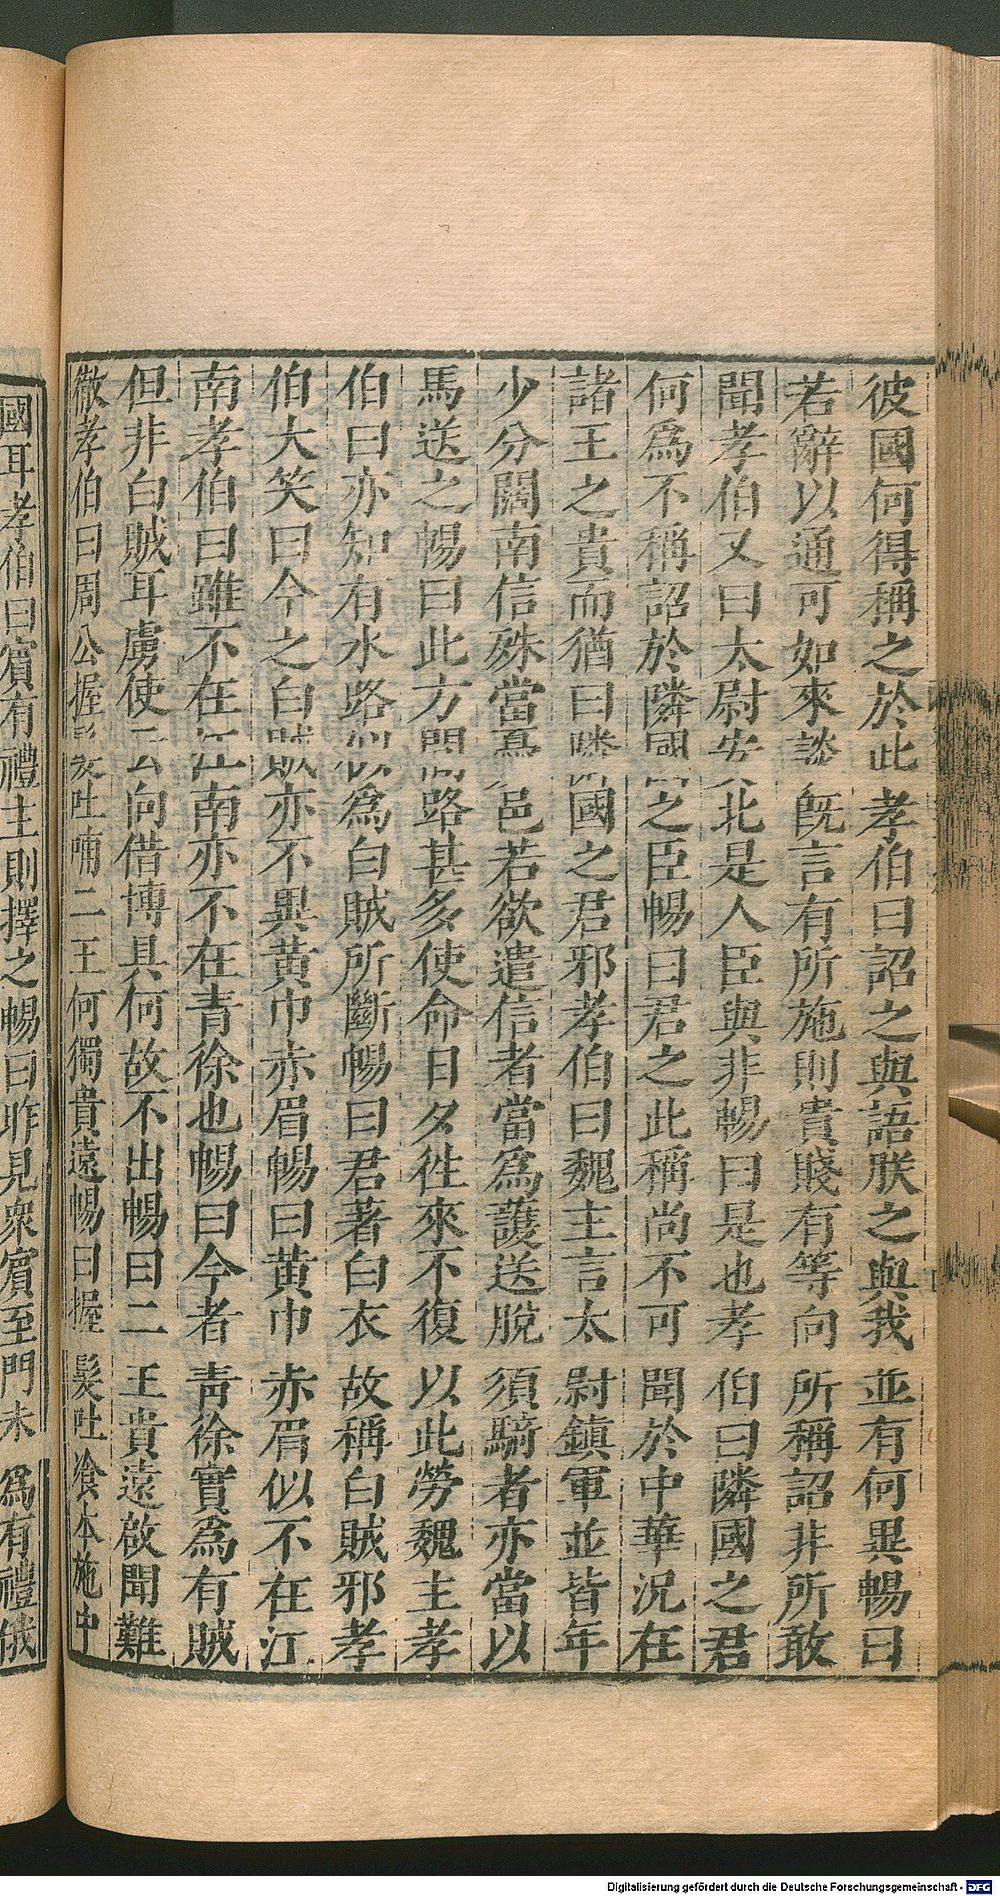 彼國何得稱之於此孝伯曰詔之與語朕之與我並有何異暢曰
若辭以通可如來談旣言有所施則貴賤有等向所稱詔非所敢
聞孝伯又曰太尉安北是人臣與非暢曰是也孝伯曰隣國之君
何爲不稱詔於隣國之臣暢曰君之此稱尚不可聞於中華況在
諸王之貴而猶曰隣國之君邪孝伯曰魏主言太尉鎮軍並皆年
少分闊南信殊當邑若欲遣信者當爲護送脫須騎者亦當以
馬送之暢曰此方間路甚多使命日夕徃來不復以此勞魏主孝
伯曰亦知有水路似爲白賊所斷暢曰君著白衣故稱白賊邪孝
伯大笑曰今之白賊亦不異黄巾赤眉暢曰黄巾赤眉似不在江
南孝伯曰雖不在江南亦不在青徐也暢曰今者靑徐實爲有賊
但非白賊耳虜使云向借博具何故不出暢曰二王貴遠啟聞難
徹孝伯曰周公握髮吐哺二王何獨貴遠暢曰握髮吐飡本施中
國耳孝伯曰賓有禮主則擇之暢曰昨見衆賓至門未爲有禮俄
Digitalisierung gefördert durch die Deutsche Forschungsgemeinschaft - DFG